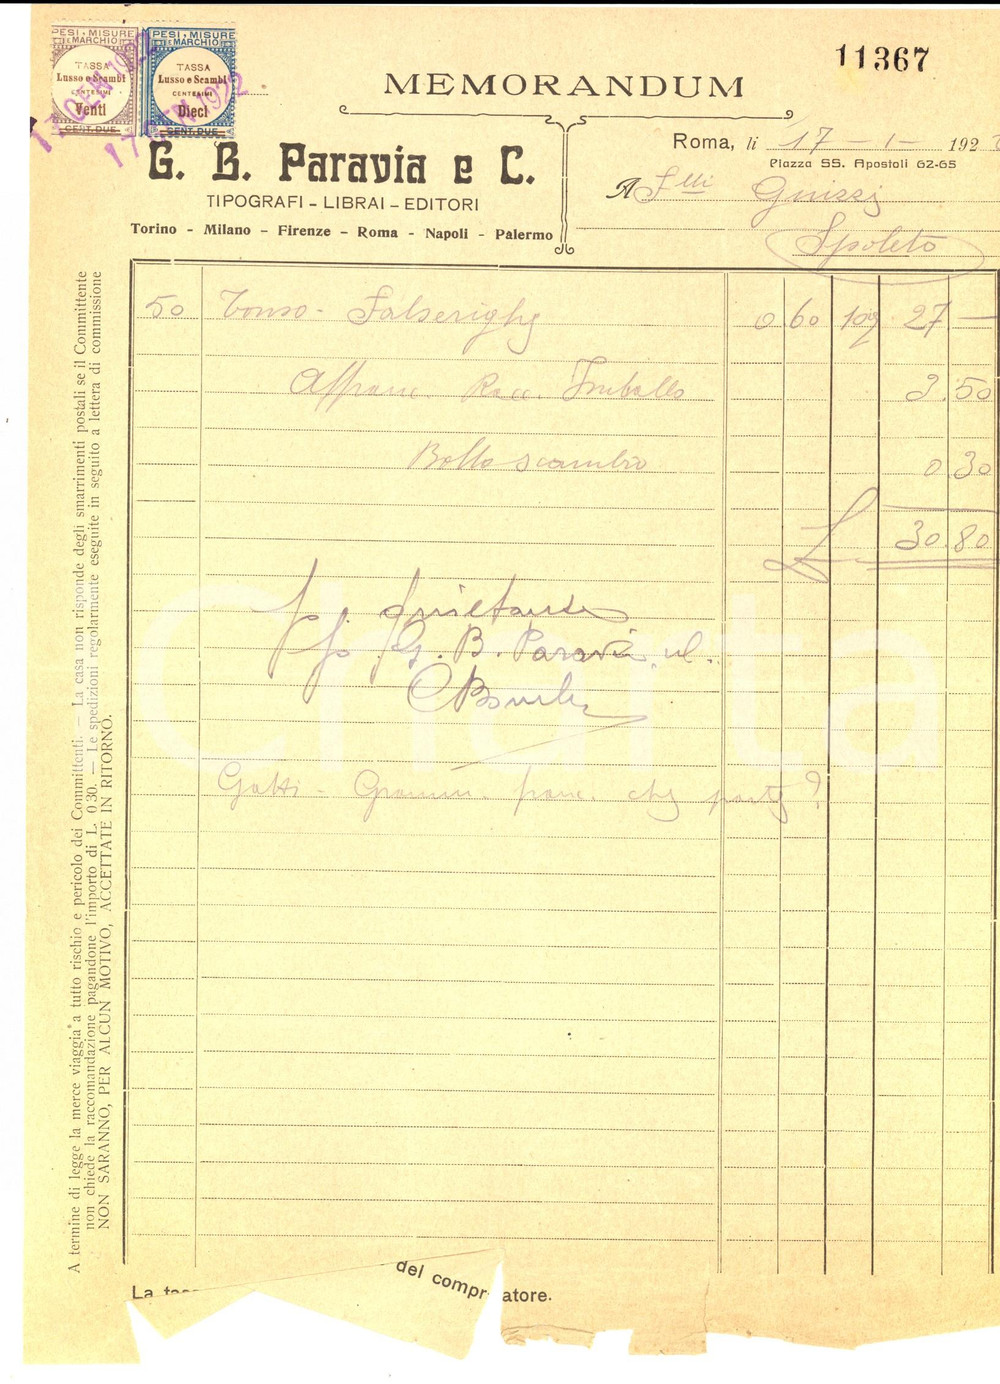 PESI E MISURE
E MARCHIO
TASSA
Lusso e Scambi
CENTESIMI
Venti
CENT. DUE
PESI E MISURE
E MARCHIO
TASSA
Lusso e Scambi
CENTESIMI
Dieci
CENT. DUE
17 GEN 1922
17 GEN 1922
11367
MEMORANDUM
Roma, li 17 - 1 - 192
Piazza SS. Apostoli 62-65
G. B. Paravia e C.
TIPOGRAFI - LIBRAI - EDITORI
Torino - Milano - Firenze - Roma - Napoli - Palermo
A Flli
Spoleto
50 Tonso - 0 60 10% 27 —
Affranc. Racc. Imballo 3.50
Bollo scambio 0 30
L 30.80
p. quietanza
p. G. B. Paravia
Gatti - Gramm. franc. che parte?
A termine di legge la merce viaggia a tutto rischio e pericolo dei Committenti. — La casa non risponde degli smarrimenti postali se il Committente
non chiede la raccomandazione pagandone l'importo di L. 0 30. — Le spedizioni regolarmente eseguite in seguito a lettera di commissione
NON SARANNO, PER ALCUN MOTIVO, ACCETTATE IN RITORNO.
La
del compr atore.
Charta